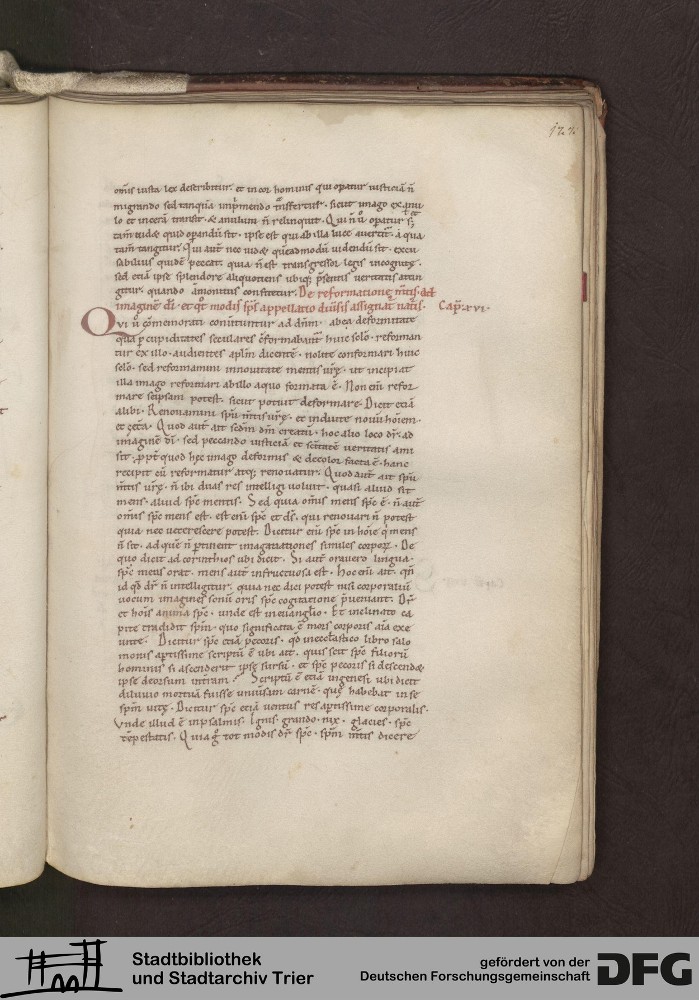 127.
om̅is iusta lex describitur. et in cor hominis qui operatur iusticiā n̄
migrando sed tanquā imp̄mendo transfertur. sicut imago ex anu
lo et in cerā transit. & anulum n̄ relinquit. Qui n̄ operatur &
tam̅ uidet quid operandū sit. ipse est qui ab illa luce auertit̄. a qua
tam̅ tangitur. Qui aut̄ nec uidet quēadmodū uidendū sit. excu
sabilius quidē peccat. quia n̄ est transgressor legis incognitę.
sed etiā ipse splendore aliquotiens ubiq; p̄sentis ueritatis attin
gitur. quando āmonitus confitetur. De reformatione m̄tis. ad
imaginē dī. et qt̄ modis sp̄s appellatio diuersis assignat̄ naturis. Cap̄. xvi.
Qui u̅ cōmemorati conuertuntur ad dn̄m. ab ea deformitate
qua p̲ cupiditates seculares cōformabant̄ huic sc̄lo. reforman
tur ex illo. audientes apl̄m dicentē. nolite conformari huic
sc̄lo. sed reformamini in nouitate mentis ur̄ę. ut incipiat
illa imago reformari ab illo a quo formata ē. Non eni̅ refor
mare seipsam potest. sicut potuit deformare. Dicit etiā
alibi. Renouamini sp̄u m̄tis ur̄ę. et induite nouū hōiem.
et cętā. Quod aut̄ ait sc̄dm dm̄ creatū. hoc alio loco dr̄. ad
imaginē dī. sed peccando iusticiā et sc̄itatē ueritatis ami
sit. p̄pt̄ quod hęc imago deformis & decolor facta ē. hanc
recipit cū reformatur atq; renouatur. Quod aut̄ ait sp̄u
m̄tis ur̄ę. n̄ ibi duas res intelligi uoluit. quasi aliud sit
mens. aliud sp̄c mentis. Sed quia om̅is mens sp̄c ē. n̄ aut̄
om̅is sp̄c mens est. est eni̅ sp̄c et ds̄. qui renouari n̄ potest
quia nec ueterescere potest. Dicitur eni̅ sp̄c in hōie q̣ mens
n̄ sit. ad quē n̄ p̲tinent imaginationes similes corporū. De
quo dicit ad corinthios ubi dicit. Si aut̄ orauero lingua.
sp̄c meus orat. mens aut̄ infructuosa est. Hoc eni̅ ait. qn̄
id qd̄ dr̄ n̄ intelligitur. quia nec dici potest nisi corporaliū
uocum imagines sonū oris sp̄c cogitatione p̄ueniant. Dr̄
et hoīs anima sp̄c. unde est in euanglio. Et inclinato ca
pite tradidit sp̄m. quo significata ē mors corporis aīa exe
unte. Dicitur sp̄c etiā pecoris. qd̄ in eccl̄astico libro salo
monis ap̲tissime scriptū ē ubi ait. quis scit sp̄c filiorū
hominis si ascenderit ipse sursū. et sp̄c pecoris si descendet
ipse deorsum in terram. Scriptū ē etiā in genesi ubi dicit
diluuio mortuā fuisse uniuersam carnē. quę habebat in se
sp̄m uitę. Dicitur sp̄c etiā uentus res ap̲tissime corporalis.
Vnde illud ē in psalmis. Ignis. grando. nix. glacies. sp̄c
tēpestatis. Quia g̊ tot modis dr̄ sp̄c. sp̄m m̄tis dicere
Stadtbibliothek
und Stadtarchiv Trier
gefördert von der
Deutschen Forschungsgemeinschaft
DFG